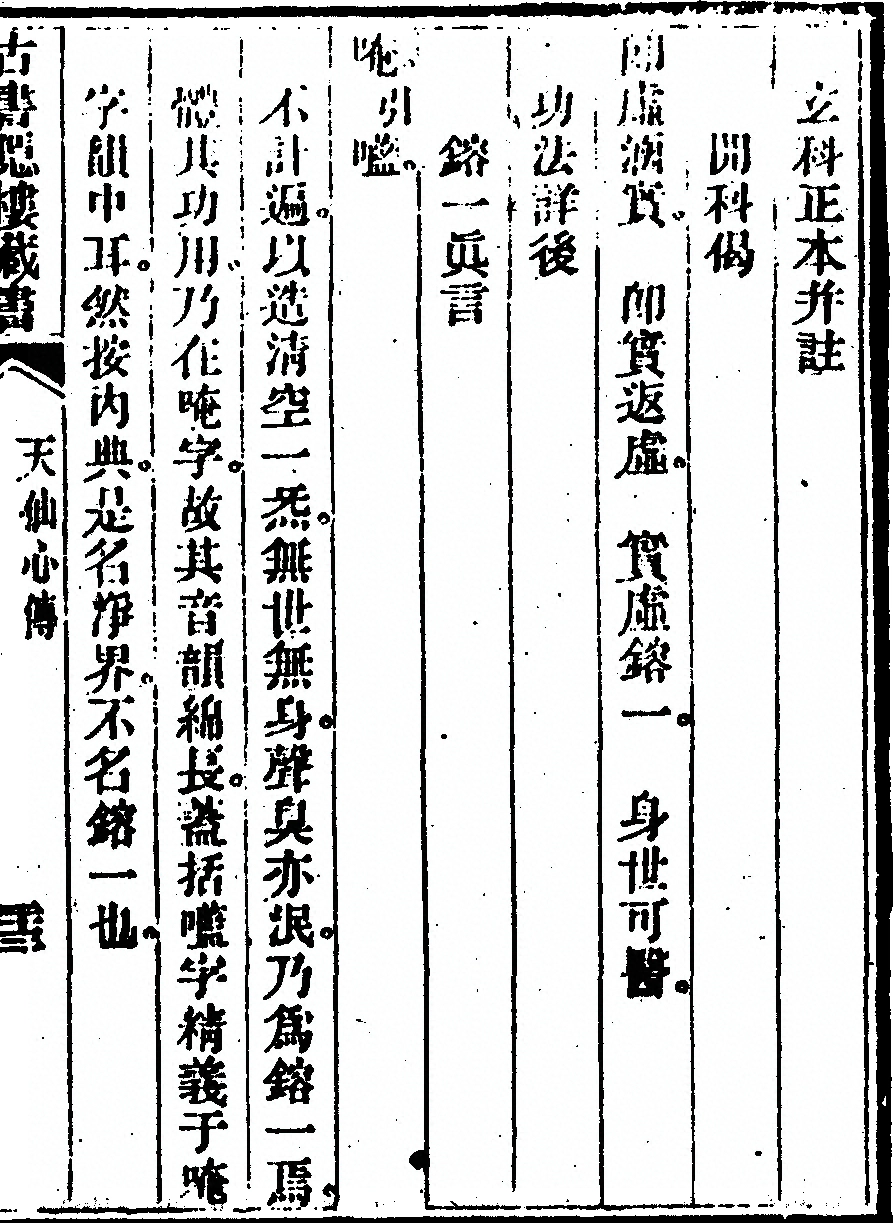 立科正本并註
開科偈
即虛涵實。　即實返虛。　實虛鎔一。　身世可醫。
功法詳後
鎔一眞言
唵。引嚂。
不計遍。以造清空一炁。無世無身。聲臭亦泯。乃爲鎔一焉。
體其功用。乃在唵字。故其音韻綿長。蓋括嚂字精義于唵
字韻中耳。然按內典。是名淨界。不名鎔一也。
古書隱樓藏書
天仙心傳